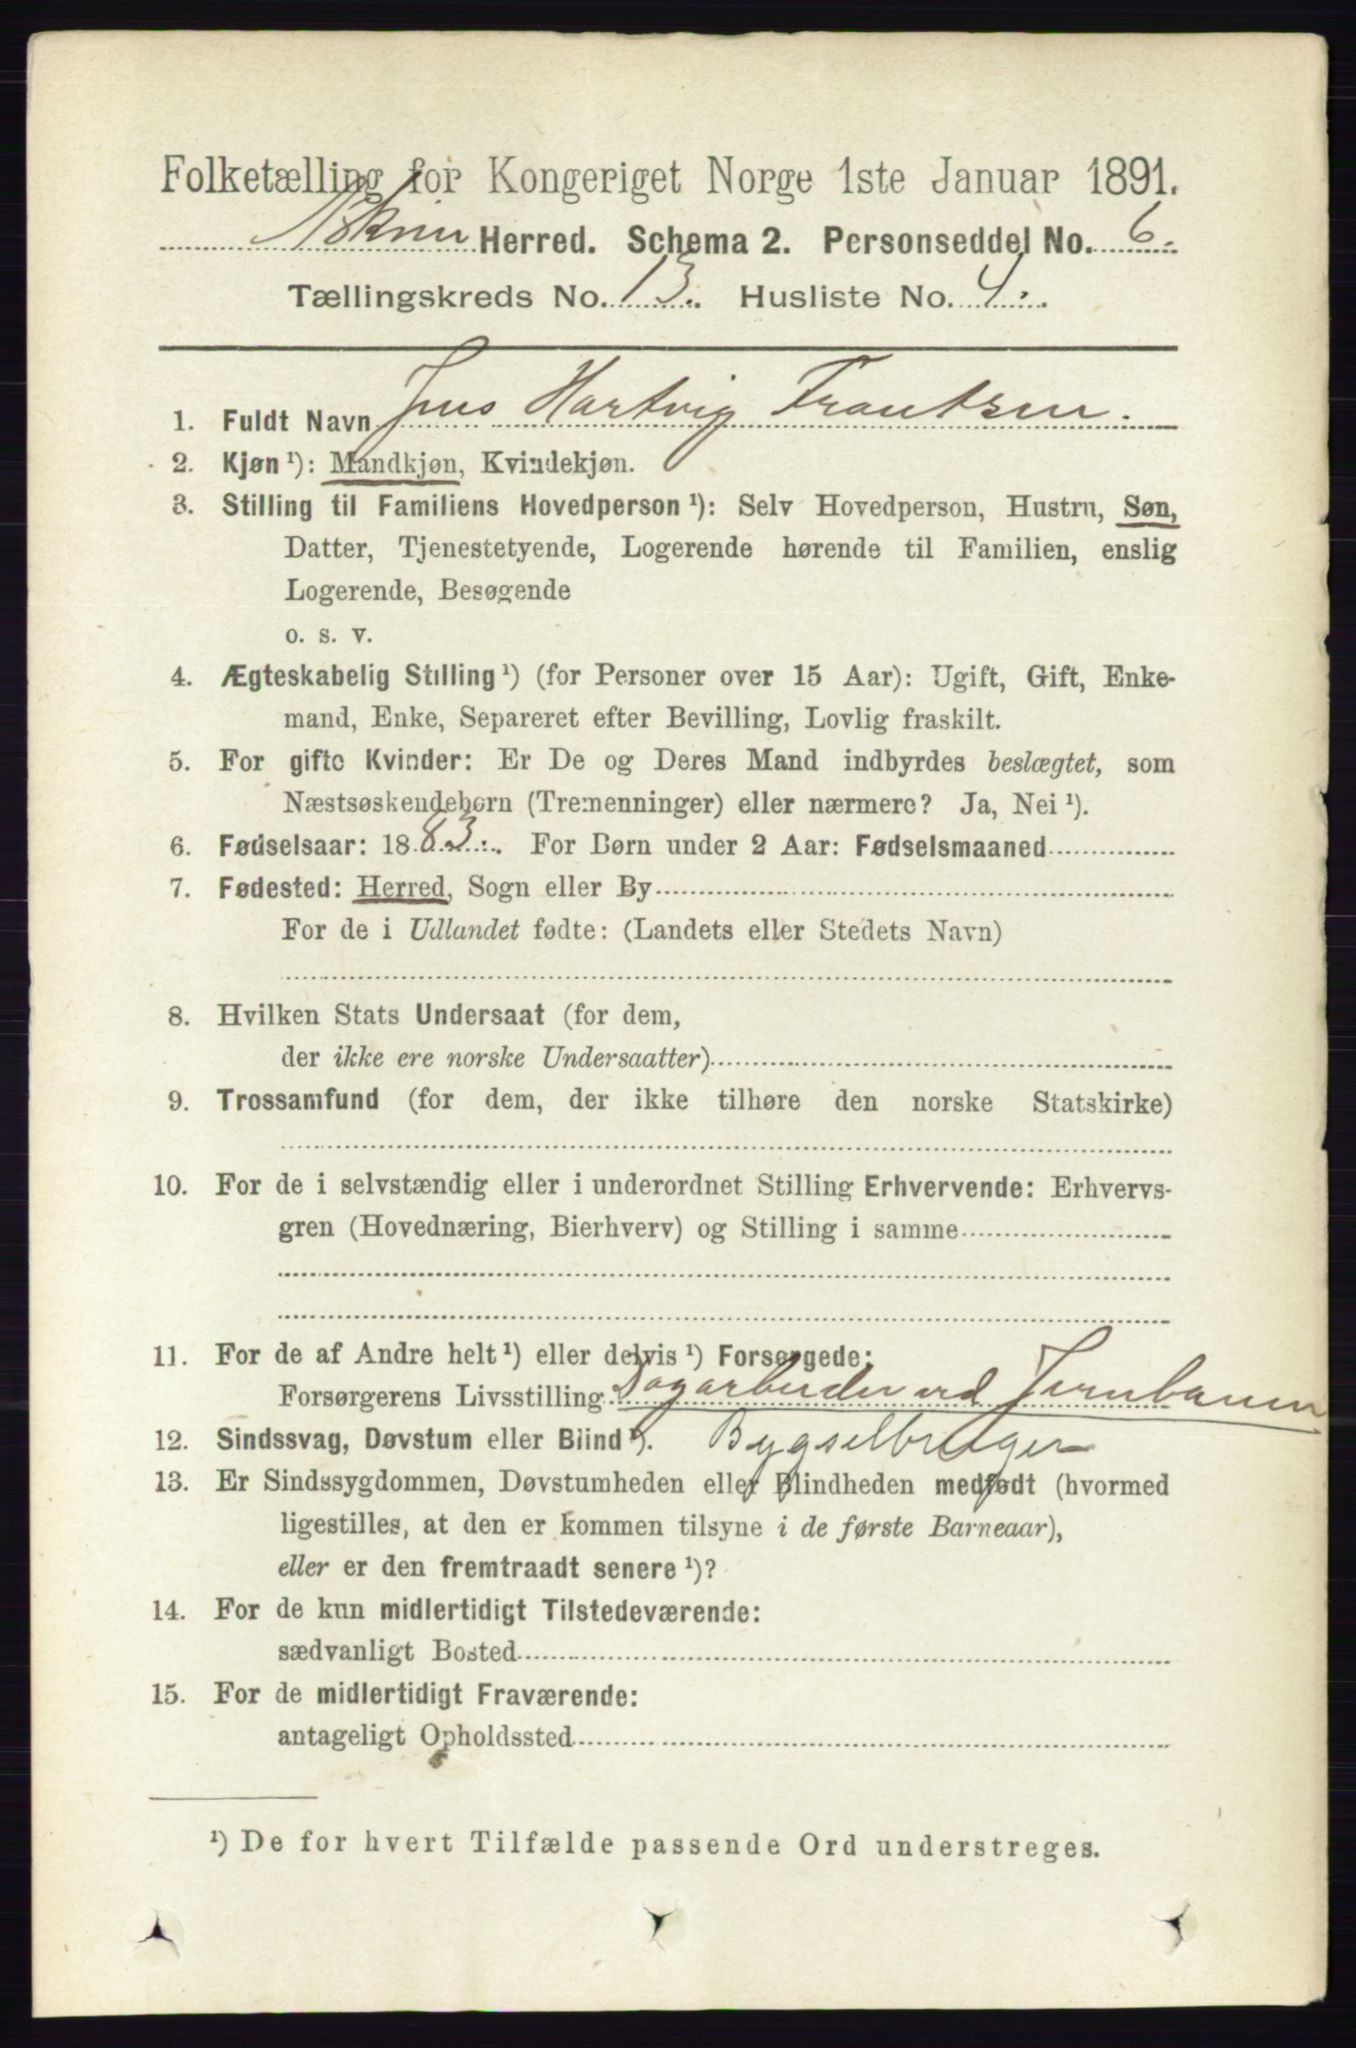 Folketælling for Kongeriget Norge 1ste Januar 1891.
Askim Herred. Schema 2. Personseddel No. 6.
Tællingskreds No. 13. Husliste No. 4.
1. Fuldt Navn Jens Hartvig Frantsen.
2. Kjøn ¹): Mandkjøn, Kvindekjøn.
3. Stilling til Familiens Hovedperson ¹): Selv Hovedperson, Hustru, Søn,
Datter, Tjenestetyende, Logerende hørende til Familien, enslig
Logerende, Besøgende
o. s. v.
4. Ægteskabelig Stilling ¹) (for Personer over 15 Aar): Ugift, Gift, Enke-
mand, Enke, Separeret efter Bevilling, Lovlig fraskilt.
5. For gifte Kvinder: Er De og Deres Mand indbyrdes beslægtet, som
Næstsøskendebørn (Tremenninger) eller nærmere? Ja, Nei ¹).
6. Fødselsaar: 1883. For Børn under 2 Aar: Fødselsmaaned
7. Fødested: Herred, Sogn eller By
For de i Udlandet fødte: (Landets eller Stedets Navn)
8. Hvilken Stats Undersaat (for dem,
der ikke ere norske Undersaatter)
9. Trossamfund (for dem, der ikke tilhøre den norske Statskirke)
10. For de i selvstændig eller i underordnet Stilling Erhvervende: Erhvervs-
gren (Hovednæring, Bierhverv) og Stilling i samme
11. For de af Andre helt ¹) eller delvis ¹) Forsørgede:
Forsørgerens Livsstilling Dagarbeider ved Jernbanen
12. Sindssvag, Døvstum eller Blind ¹). Bygselbruger
13. Er Sindssygdommen, Døvstumheden eller Blindheden medfødt (hvormed
ligestilles, at den er kommen tilsyne i de første Barneaar),
eller er den fremtraadt senere ¹)?
14. For de kun midlertidigt Tilstedeværende:
sædvanligt Bosted
15. For de midlertidigt Fraværende:
antageligt Opholdssted
¹) De for hvert Tilfælde passende Ord understreges.